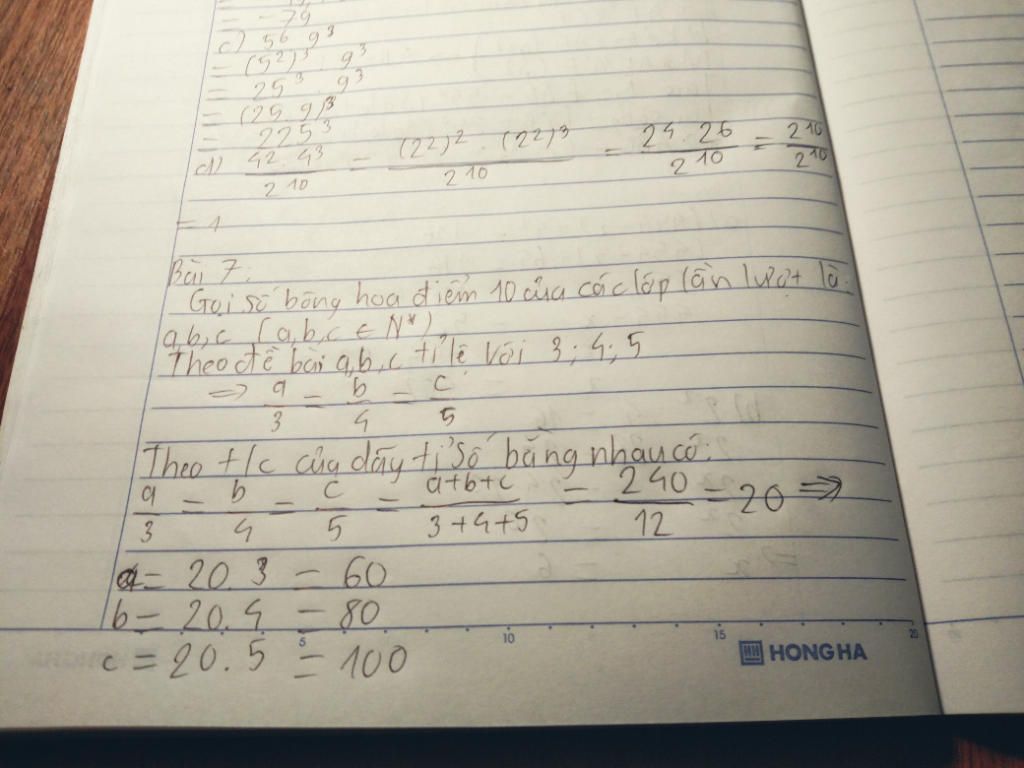 = -79
c) 5⁶ . 9³
= (5²)³ . 9³
= 25³ . 9³
= (25 . 9)³
= 225³
d) 4² . 4³ / 2¹⁰ = (2²)² . (2²)³ / 2¹⁰ = 2⁴ . 2⁶ / 2¹⁰ = 2¹⁰ / 2¹⁰
= 1
Bài 7:
Gọi số bông hoa điểm 10 của các lớp lần lượt là
a, b, c (a, b, c ∈ N*)
Theo đề bài a, b, c tỉ lệ với 3; 4; 5
=> a/3 = b/4 = c/5
Theo t/c của dãy tỉ số bằng nhau có:
a/3 = b/4 = c/5 = a+b+c / 3+4+5 = 240/12 = 20 =>
a = 20 . 3 = 60
b = 20 . 4 = 80
5 10 15 20
HONG HA
c = 20 . 5 = 100